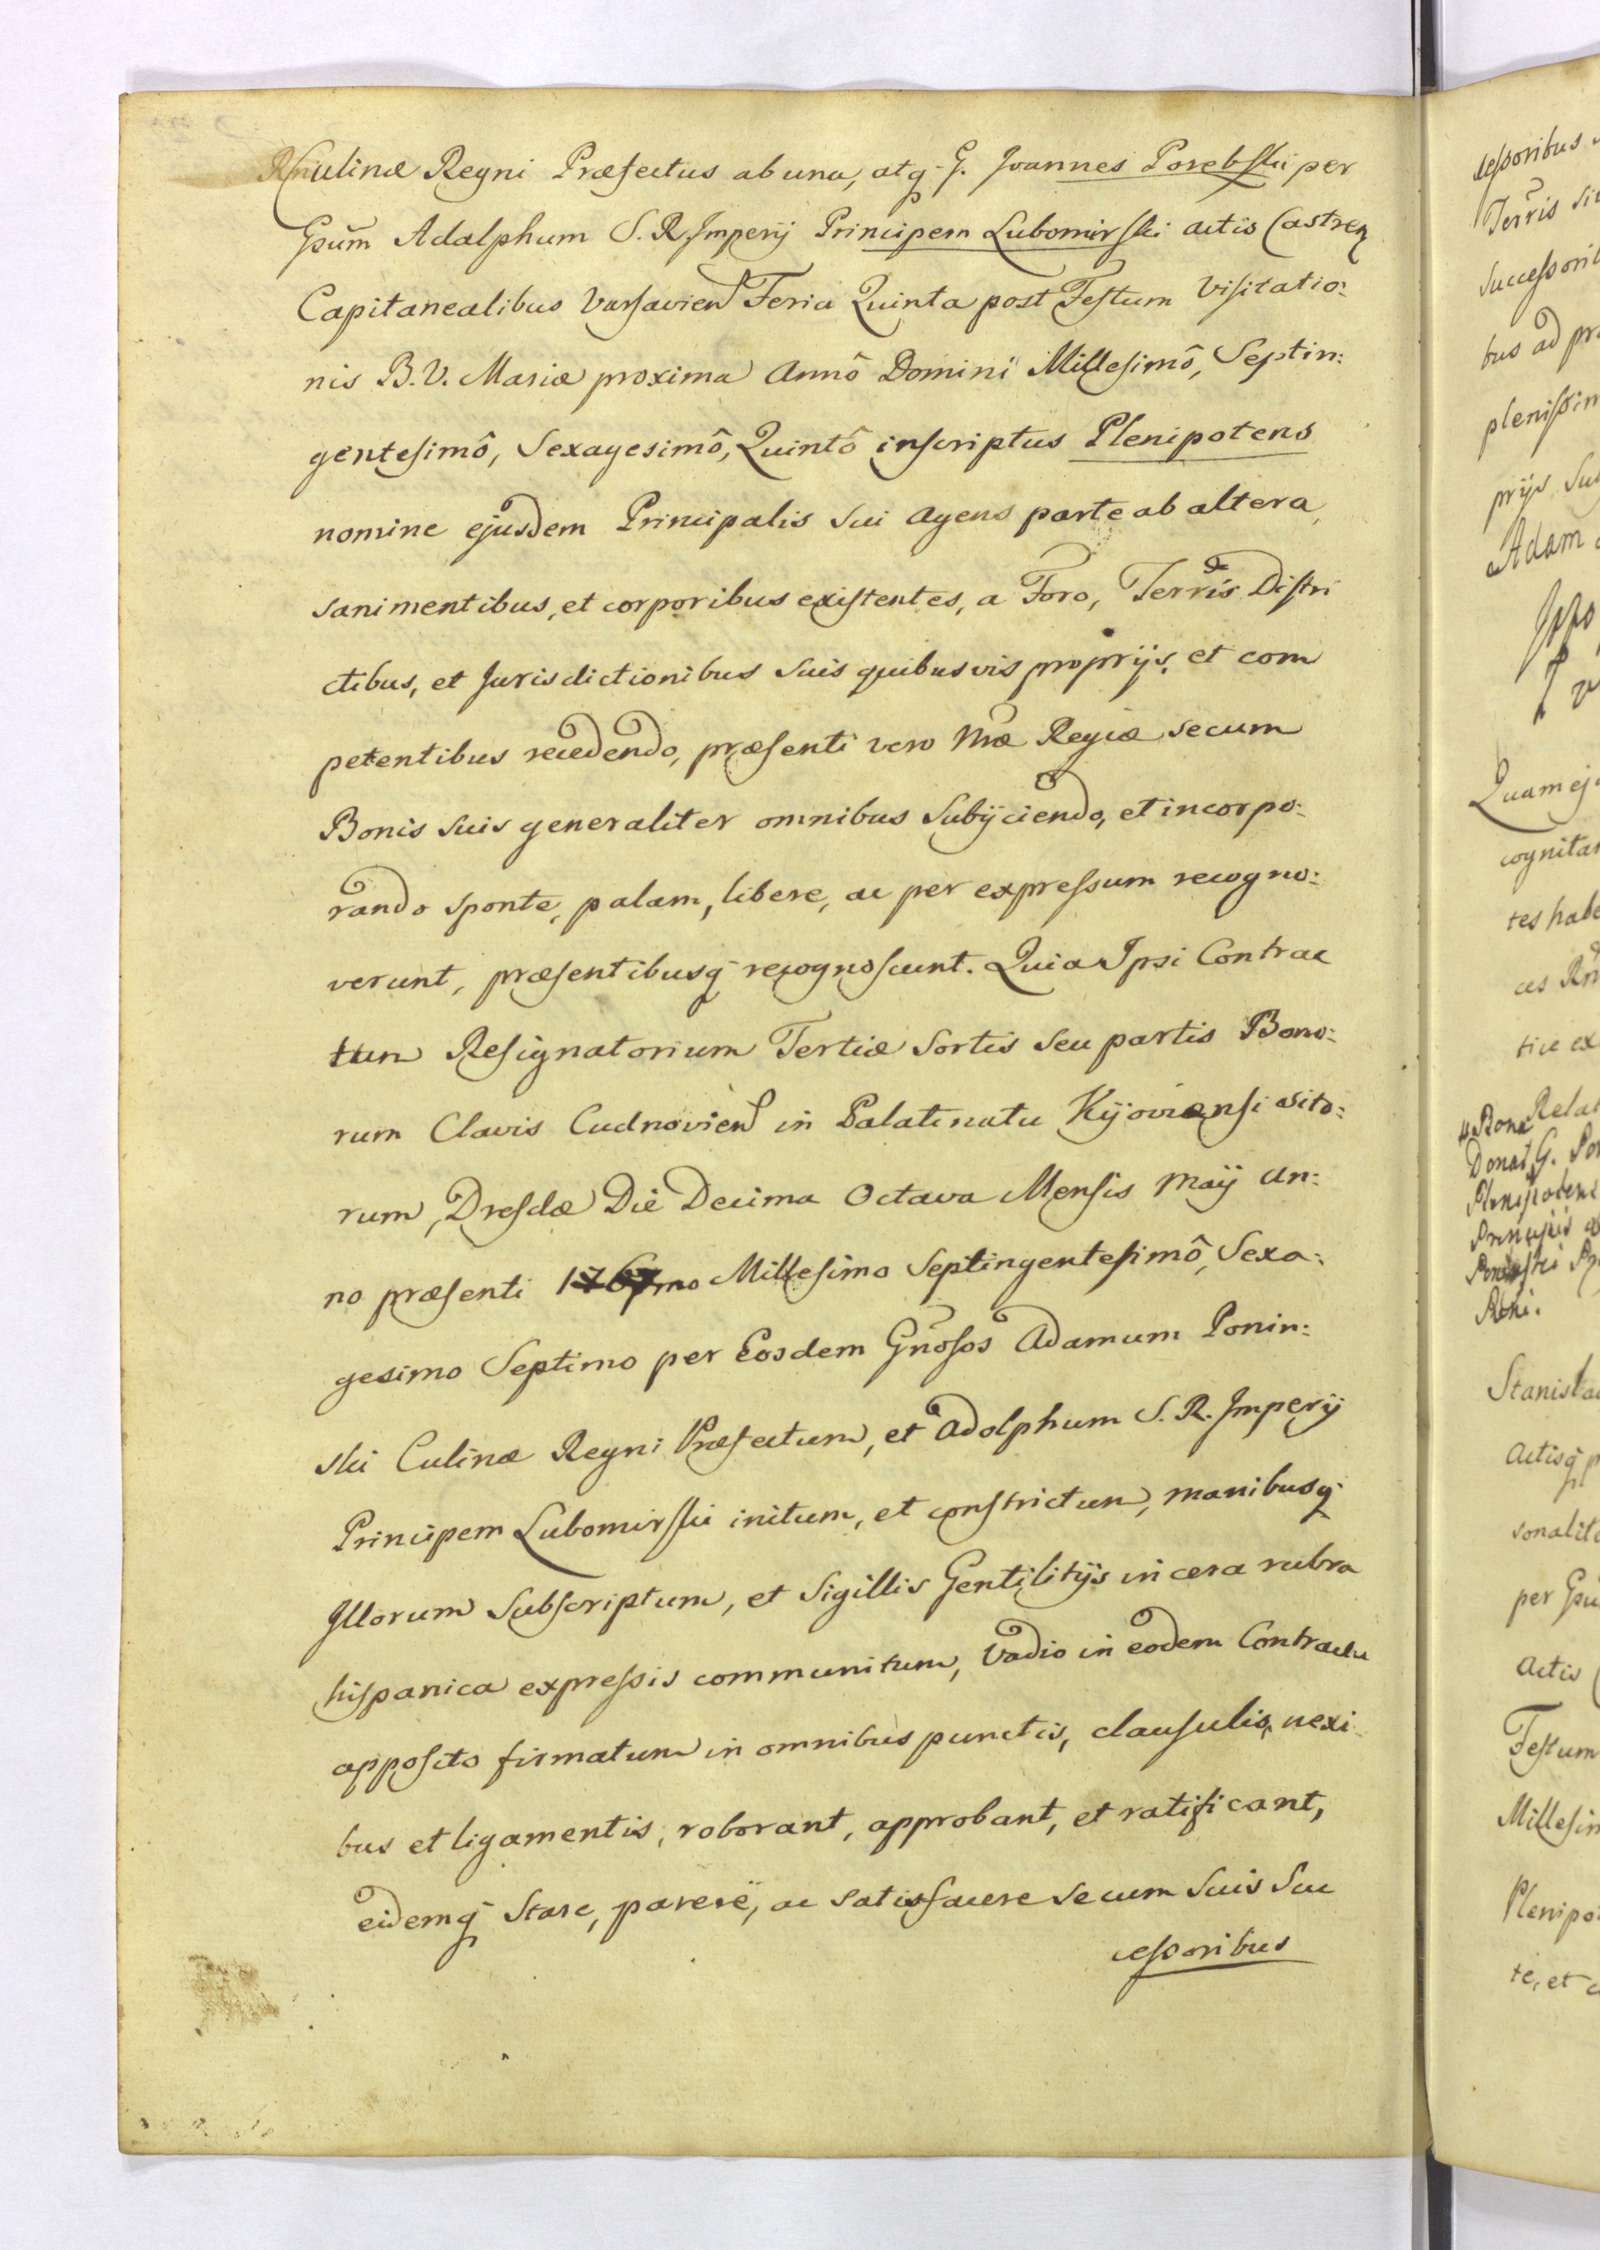 Culinæ Regni Præfectus ab una, atq; G. Joannes Porebski per
Gsum Adalphum S. R. Imperij Principem Lubomirski actis Castren
Capitanealibus Varsavien Feria Quinta post Festum Visitatio:
nis B. V. Mariæ proxima Annô Domini Millesimô, Septin:
gentesimô, Sexagesimô, Quintô inscriptus Plenipotens
nomine ejusdem Principalis sui agens parte ab altera
sani mentibus, et corporibus existentes, a Foro, Terris Distri
ctibus, et Jurisdictionibus suis quibusvis proprijs, et com
petentibus recedendo, præsenti vero Mæ Regiæ secum
Bonis suis generaliter omnibus Subijciendo, et incorpo:
rando sponte, palam, libere, ac per expressum recogno:
verunt, præsentibusq recognoscunt. Quia Ipsi Contrac
tum Resignatorium Tertiæ Sortis seu partis Bono:
rum Clavis Cudnovien in Palatinatu Kijoviænsi sito:
rum, Dresdæ Die Decima Octava Mensis Maij an:
no præsenti 1767mo Millesimo Septingentesimô, Sexa:
gesimo Septimo per Eosdem Gnosos Adamum Ponin:
ski Culinæ Regni Præfectum, et Adolphum S. R. Imperij
Principem Lubomirski initum, et constrictum, manibusq
Illorum Subscriptum, et Sigillis Gentilitijs in cera rubra
hispanica expressis communitum, Vadio in eodem Contractu
apposito firmatum in omnibus punctis, clausulis, nexi
bus et ligamentis, roborant, approbant, et ratificant,
eidemq Stare, parere, ac satisfacere secum suis Suc
cessoribus
cessoribus
Terris
Successorib
bus ad
plenissim
prijs
Adam
Quam
cognitam
tes habe
tice ex
Relat
Bona
Donat G.
Plenipotens
Principis
Stanisla
Actisq
sonalit
per
Actis
Festum
Millesim
Plenipo
te, et